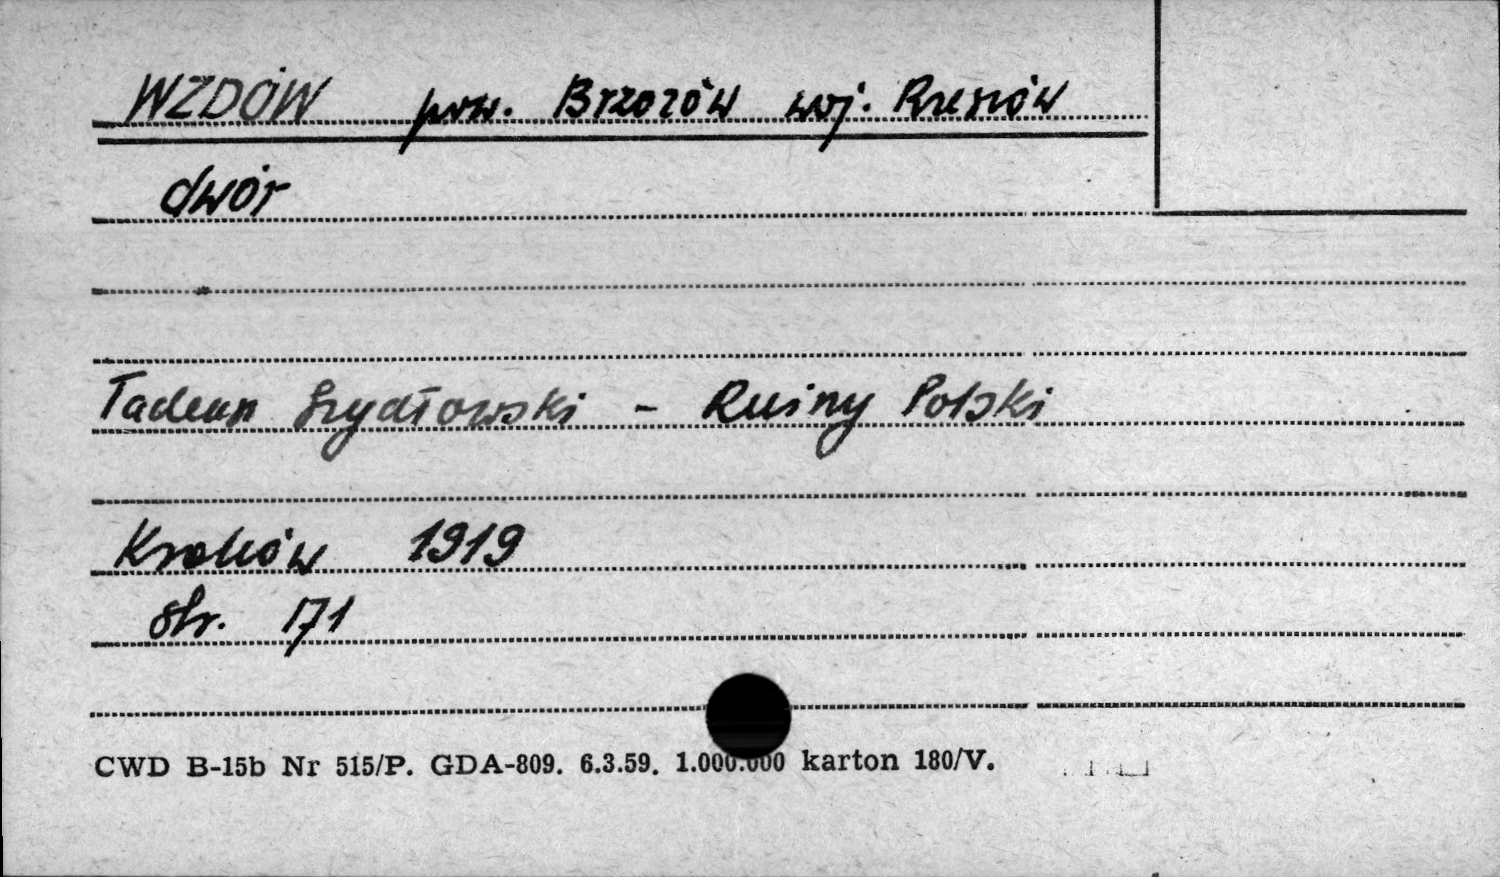 WZDÓW pow. Brzozów woj. Rzeszów
dwór
Tadeusz Szydłowski - Ruiny Polski
Kraków 1919
str. 171
CWD B-15b Nr 515/P. GDA-809. 6.3.59. 1.000.000 karton 180/V.